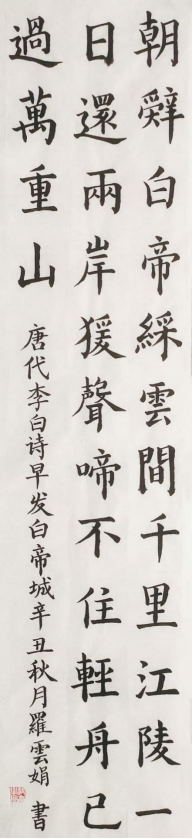 朝辭白帝綵雲間千里江陵一
日還兩岸猨聲啼不住輕舟已
過萬重山
唐代李白诗早发白帝城辛丑秋月羅雲娟 書